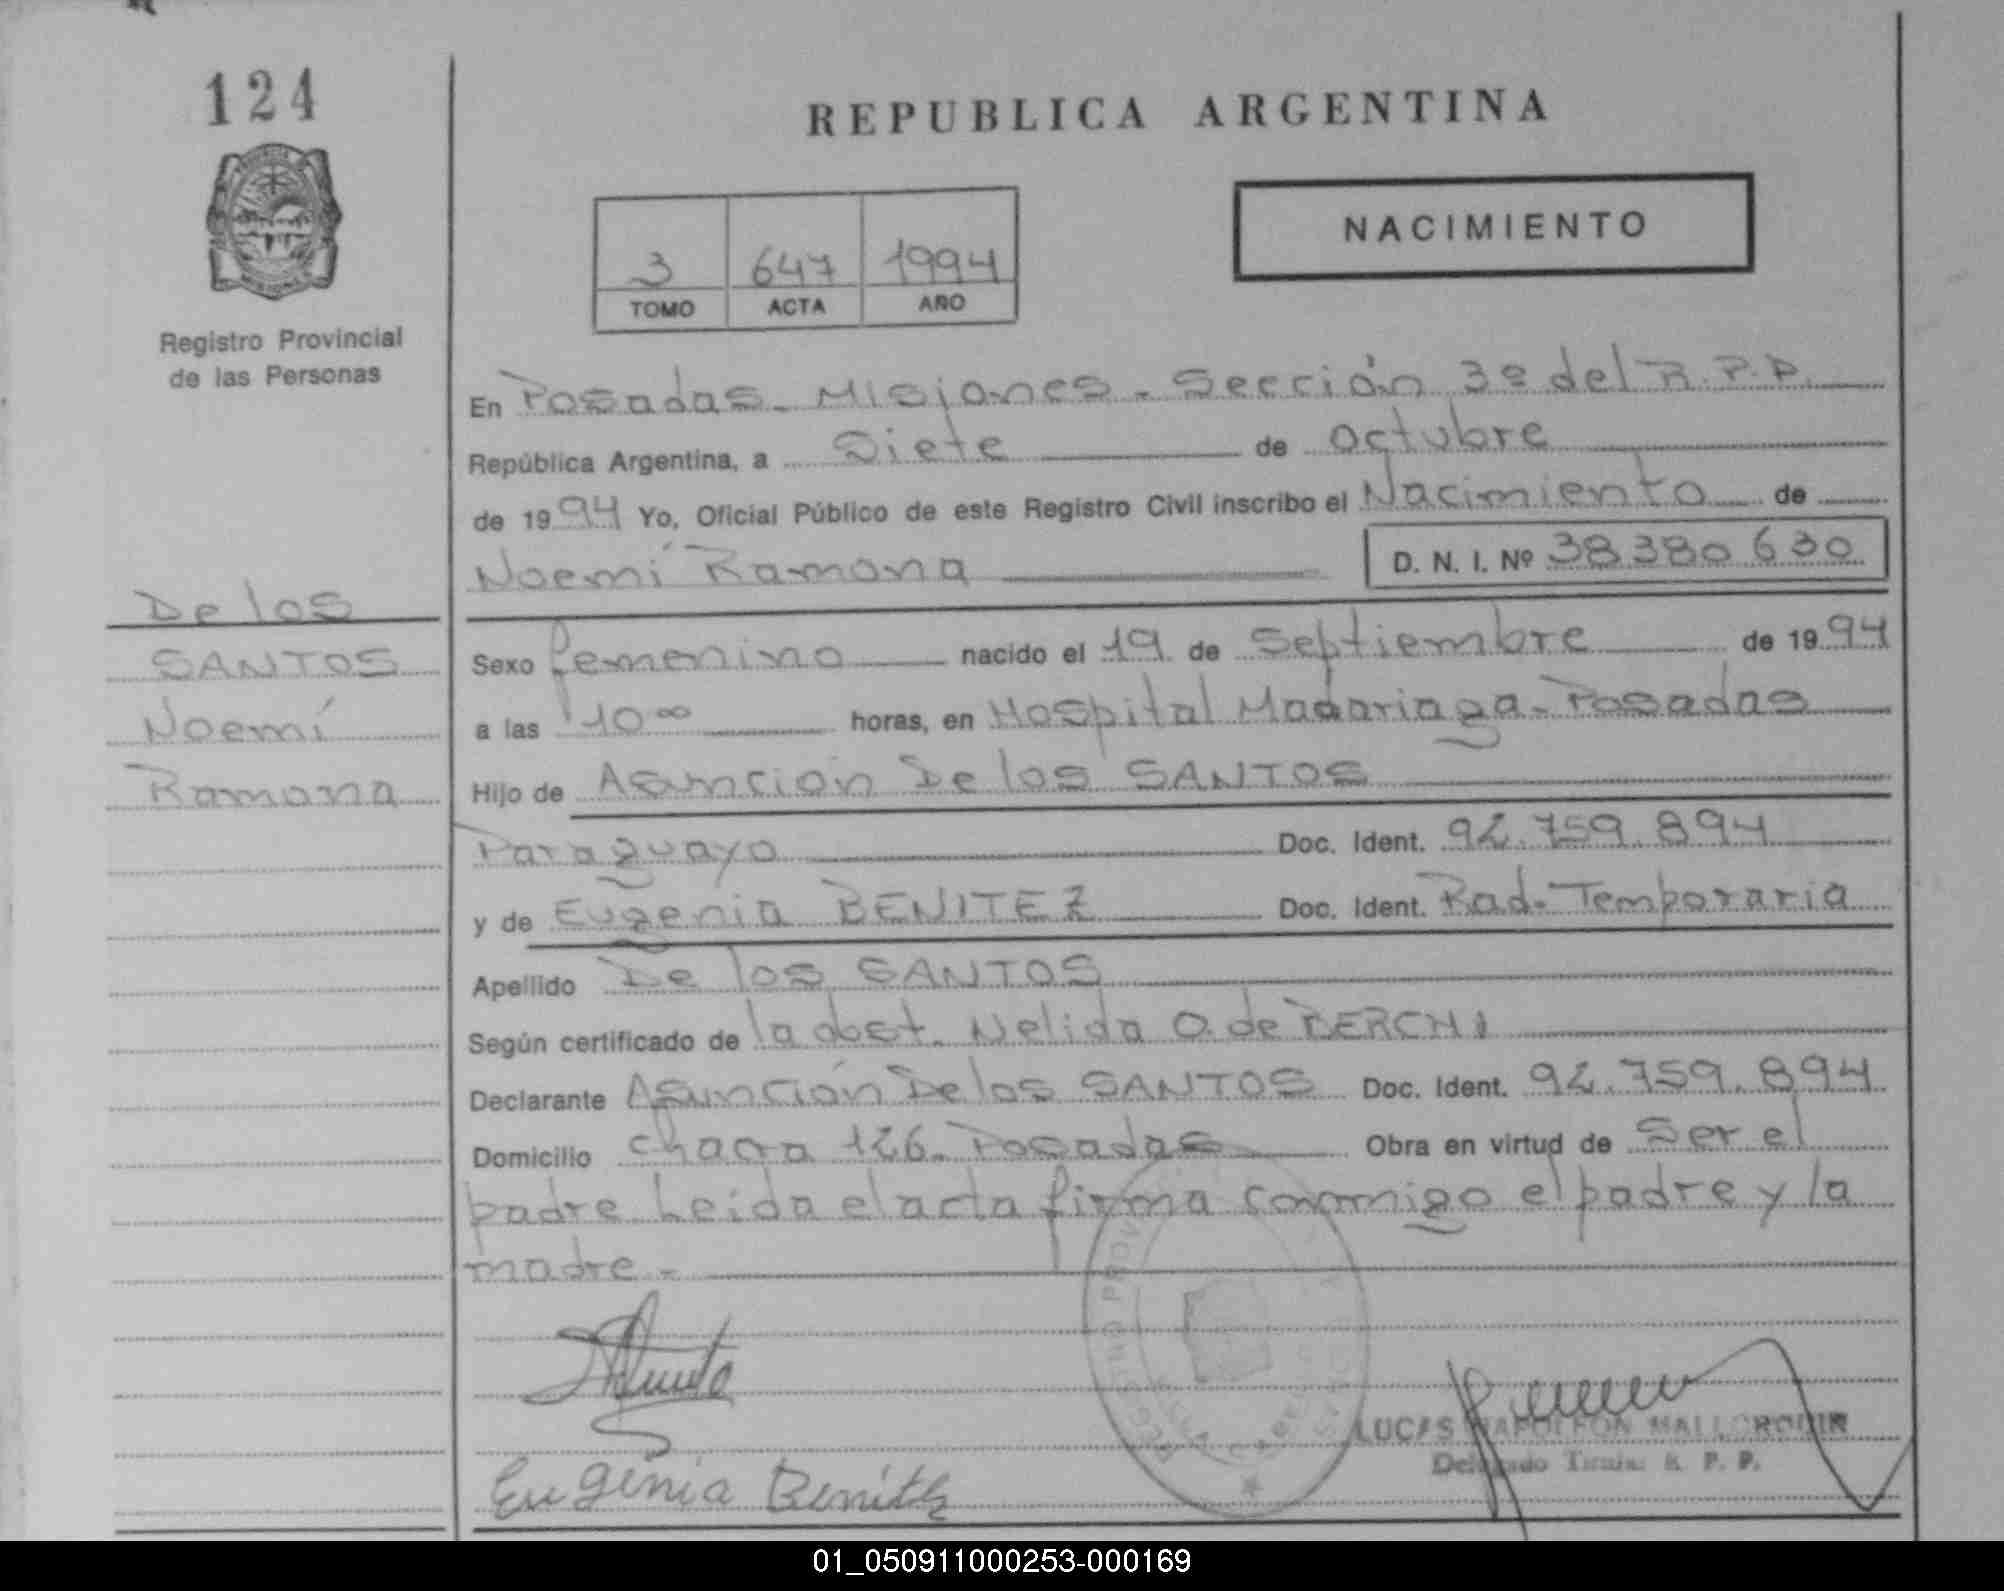 124
REPUBLICA ARGENTINA
NACIMIENTO
3 647 1994
TOMO ACTA AÑO
Registro Provincial
de las Personas
En Posadas - Misiones - Sección 3º del R.P.P.
República Argentina, a Siete de octubre
de 1994 Yo, Oficial Público de este Registro Civil inscribo el Nacimiento de
Noemí Ramona D. N. I. Nº 38.380.630
De los
SANTOS
Noemí
Ramona
Sexo femenino nacido el 19 de Septiembre de 1994
a las 10 00 horas, en Hospital Madariaga - Posadas
Hijo de Asuncion De los SANTOS
Paraguayo Doc. Ident. 92.759.894
y de Eugenia BENITEZ Doc. Ident. Rad. Temporaria
Apellido De los SANTOS
Según certificado de la obst. Nelida O. de BERCHI
Declarante Asunción De los SANTOS Doc. Ident. 92.759.894
Domicilio chacra 126 - Posadas Obra en virtud de Ser el
padre Leida el acta firma conmigo el padre y la
madre -
LUCAS NAPOLEON MALLORQUIN
Delegado Titular R. P. P.
Eugenia Benitez
01_050911000253-000169